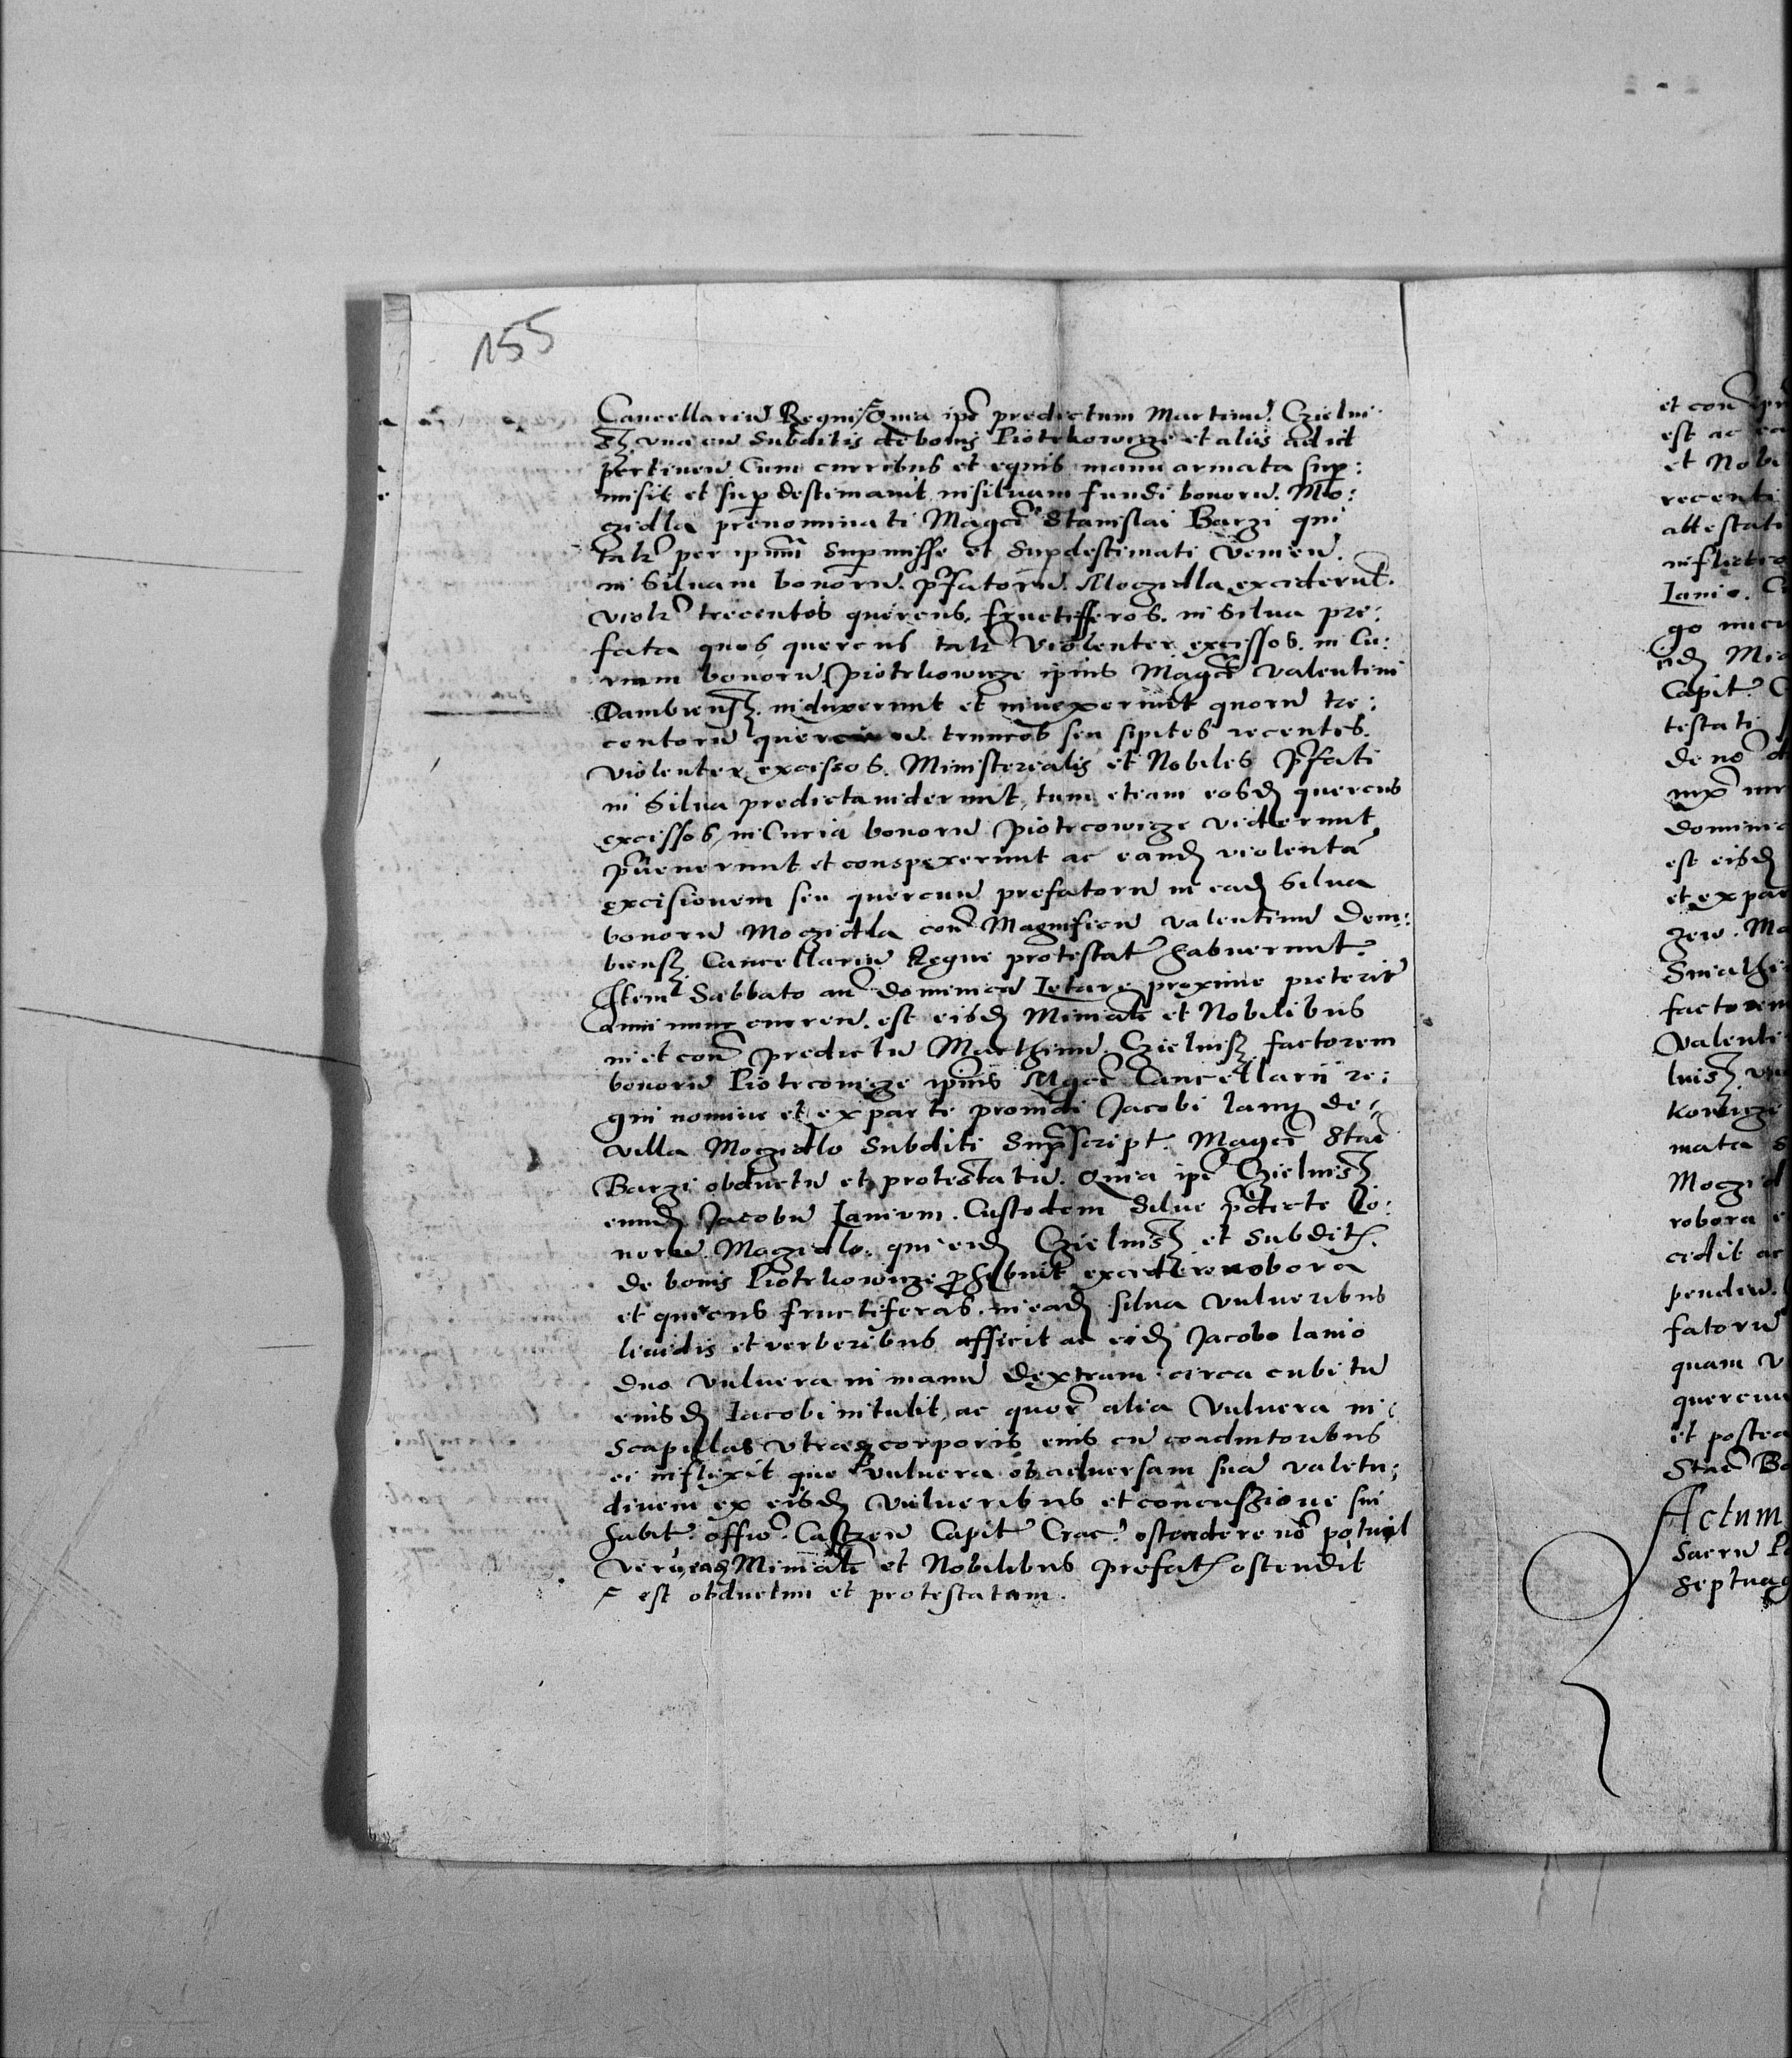 155
Cancellariũ Regni quia ip̃e predictum Martinũ Czielui
sz vna cũ Subditis de bonis Piotrkowicze et aliis ad id
pertinen̄ Cum curribus et equis manu armata sup:
misit et sup destinauit in siluam fundi bonorũ Mo:
gidla prenominati Magc̃i Stanislai Barzi qui
talr̃ per ipsum Supmisse et Supdestinati venien̄
in Siluam bonorũ p̃fatorũ Mogidla exciderut̃
violr̃ trecentos quercus fructifferos in Silua pre:
fata quos quercus talr̃ violenter excissos in Cu:
riam bonorũ Piotrkowicze ipius Magc̃i Valentini
Dambiensz induxerunt et inuexerunt quorũ tre:
centorũ quercuũ truncos seu stipites recentes
violenter excissos Ministerialis et Nobiles p̃fati
in Silua predicta viderunt, tum etiam eosd̃ quercus
excissos in Curia bonorũ piotrcowicze viderunt
p̃uenerunt et conspexerunt ac eand̃ violentã
excisionem seu quercuũ prefatorũ in ead̃ Silua
bonorũ Mogidla con̄ Magnificũ Valentinũ Dem:
biensz Cancellariũ Regni protestat̃ habuerunt
Item Sabbato an̄ dominicã Letare proxime preterit̃
anni nunc curren̄ est eisd̃ Miniali et Nobilibus
in et con̄ predictũ Marthinũ Czieluisz factorem
bonorũ Piotrcowicze ipius Mgc̃i Cancellarii re:
gni nomine et ex parte prouidi Jacobi Lanij de
villa Mogidlo Subditi Suprascript̃ Magc̃i Stac̃
Barzi obductũ et protestatũ. Quia ip̃e Czieluisz
eund̃ Jacobũ Lanium Custodem Silue p̃dicte bo:
norũ Magidlo qui eid̃ Czieluisz et Subdit̃
de bonis Piotrkowicze prohibuit excidere robora
et quercus fructiferas in ead̃ silua vulneribus
liuidis et verberibus afficit ac eid̃ Jacobo lanio
duo vulnera in manũ dextram circa cubitũ
eiusd̃ Iacobi intulit, ac quor̃ alia vulnera in
Scapulas vtrasq̃ corporis eius cũ coadiutoribus
ei inflixit que vulnera ob aduersam suã valetu:
dinem ex eisd̃ vulneribus et concussione sui
habit̃ offic̃ Castren̄ Capit̃ Crac̃ ostendere nõ potuit
verũ, eaq̃ Miniali et Nobilibus prefat̃ ostendit
est obductum et protestatam.
et con̄
est ac
et Nobi
recenti
attestati
inflicti
Lanio. C
go nuc
Capit̃
testati
de nõ
domini
est eisd̃
et ex par
factorem
Valenti
mata
Mogid
robora
cidit ac
penden̄
fatorũ
quam v
quercuu
et postea
Stac̃ Ba
Actum
Sacrũ
Septuag